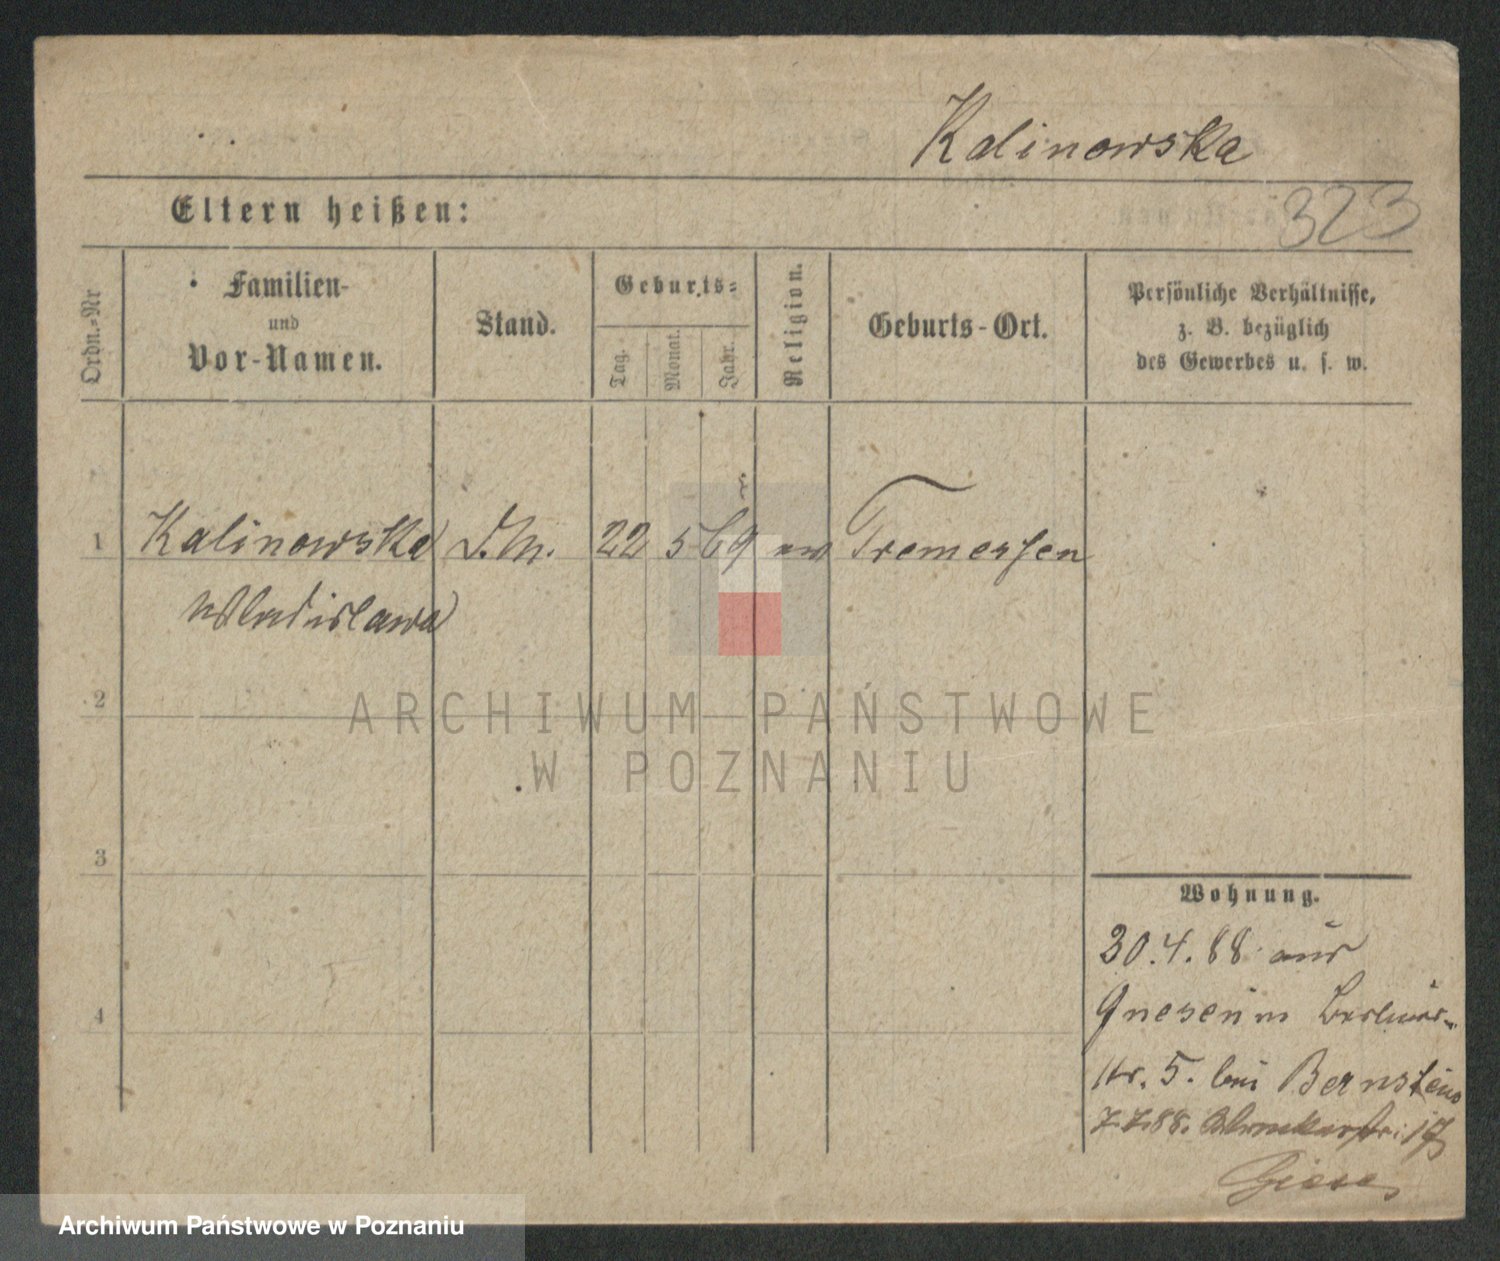 Kalinowska
323
Eltern heißen:
Ordn.-Nr
Familien-
und
Vor-Namen.
Stand.
Geburts-
Tag.
Monat.
Jahr.
Religion.
Geburts-Ort.
Persönliche Verhältnisse,
z. B. bezüglich
des Gewerbes u. s. w.
1 Kalinowska D.M. 22 5 69 Tremessen
Wladislawa
2
3
4
ARCHIWUM PAŃSTWOWE
W POZNANIU
Wohnung.
30.4.88 aus
Gnesen in Berliner-
str. 5. bei Bernstein
7.7.88. 17
Giese
Archiwum Państwowe w Poznaniu